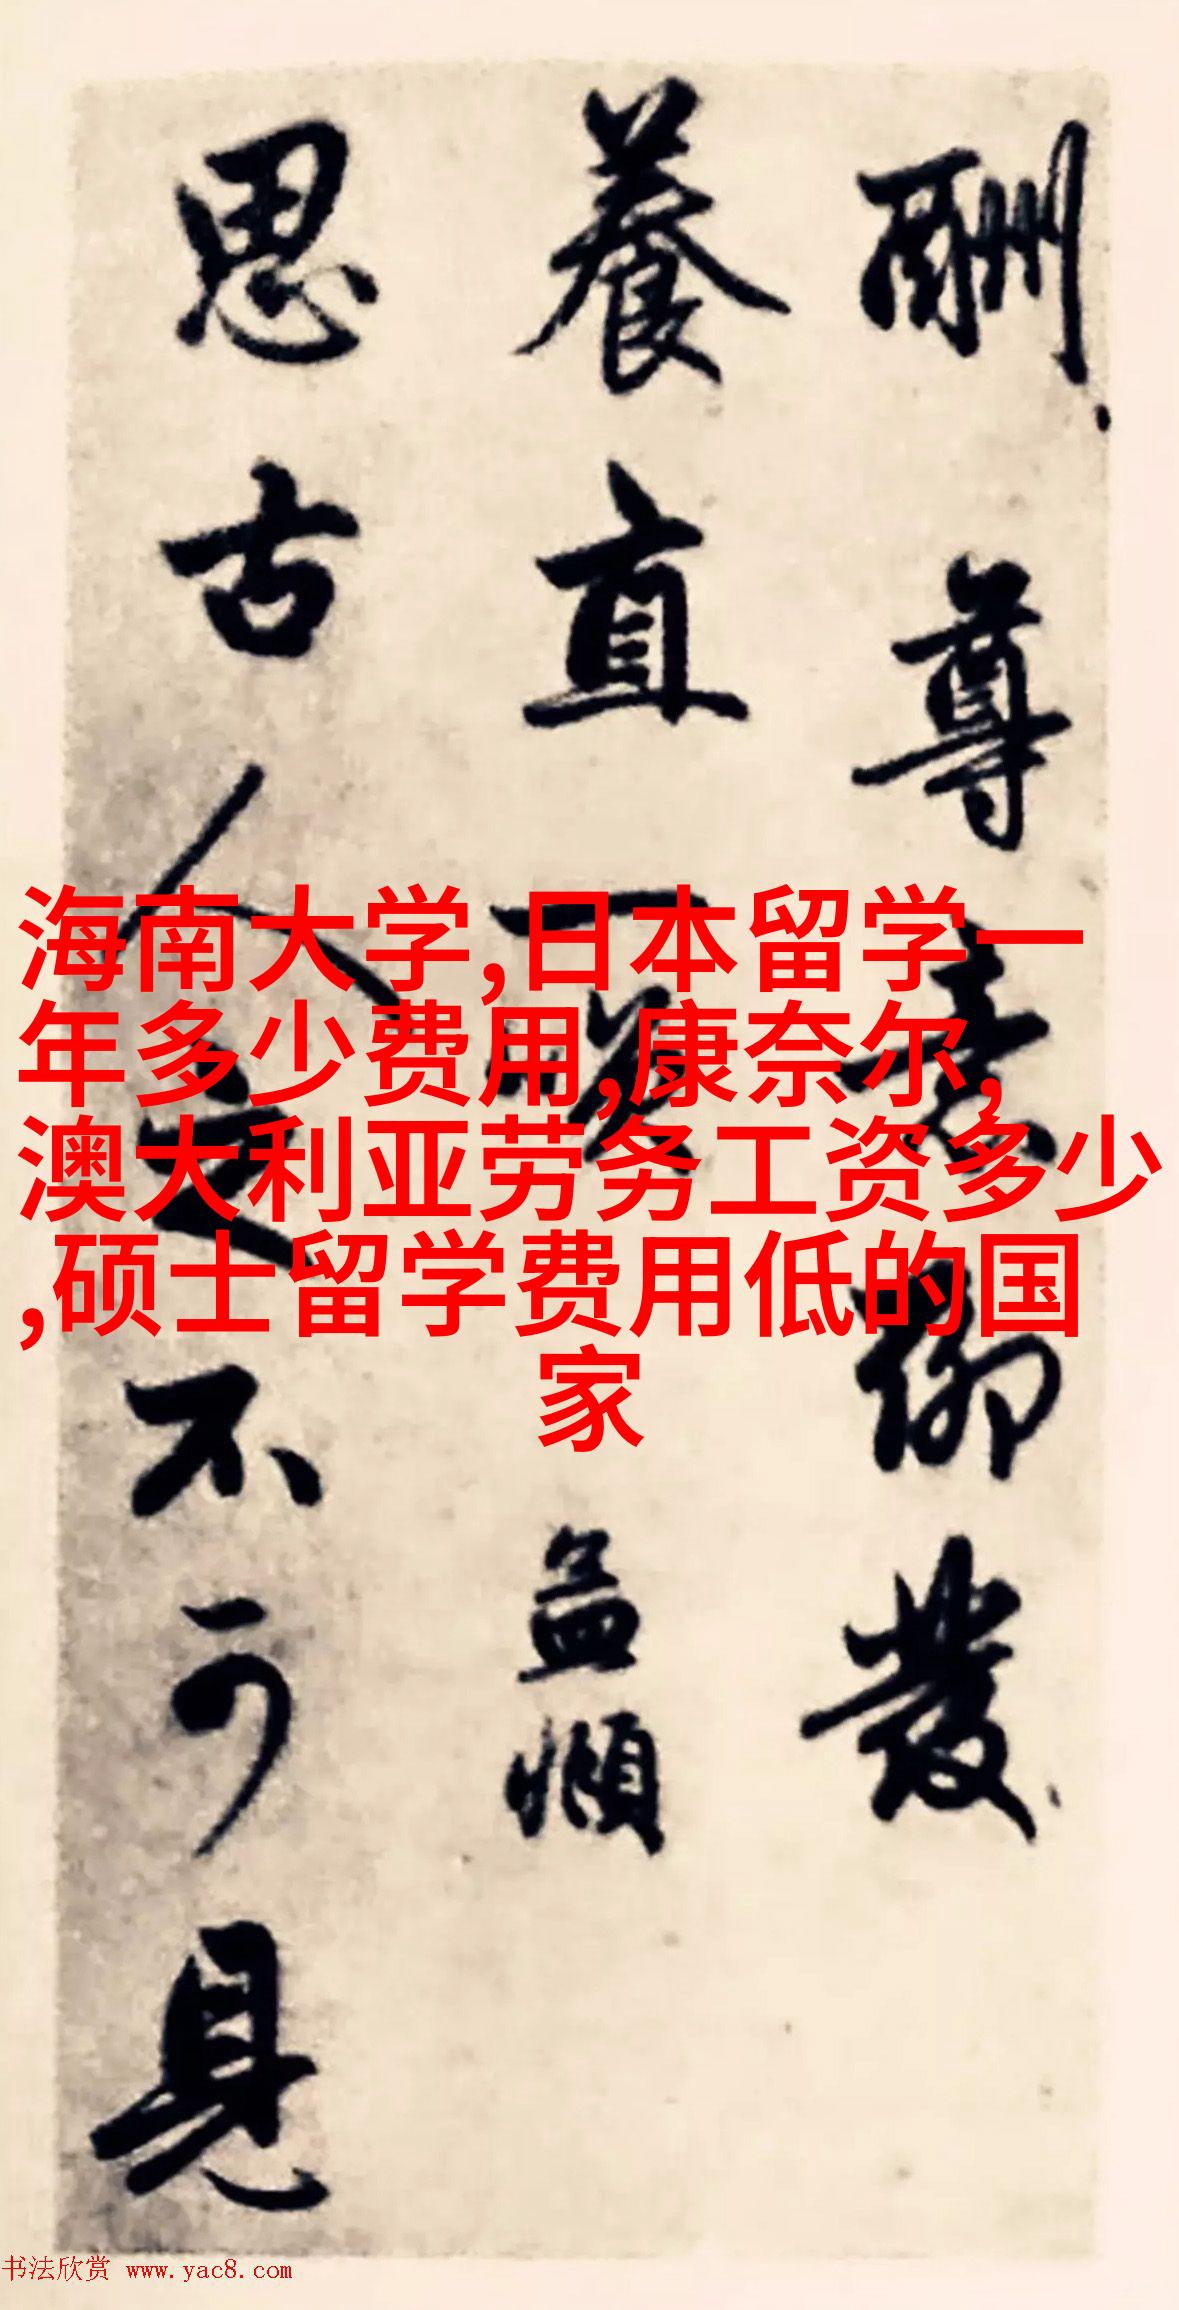 酬尊意聊發
養直一嘆益順
思古人之不可見
海南大学,日本留学一
年多少费用,康奈尔,
澳大利亚劳务工资多少
,硕士留学费用低的国
家
书法欣赏 www.yac8.com